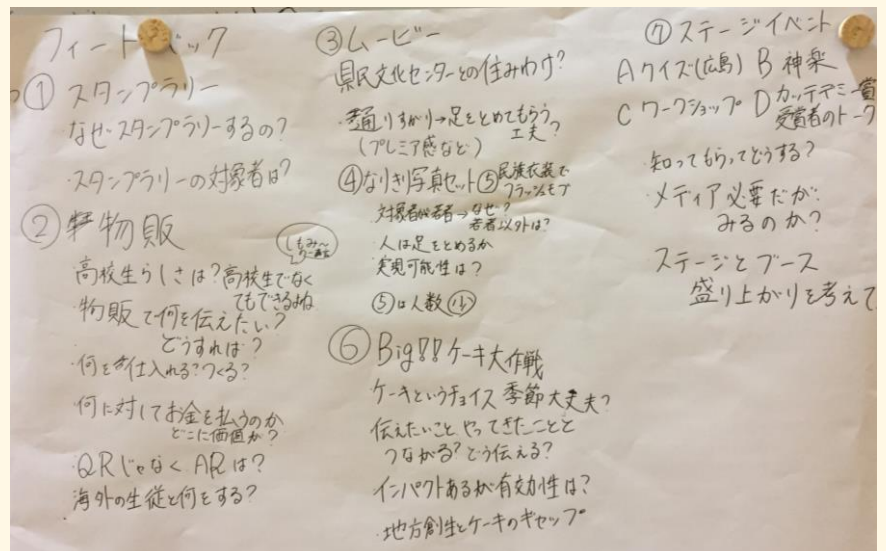 フィードバック
① スタンプラリー
なぜスタンプラリーするの?
・スタンプラリーの対象者は?
② 物販
高校生らしさは?高校生でなく
てもできるよね
・物販で何を伝えたい?
どうすれば?
・何を仕入れる?つくる?
何に対してお金を払うのか
どこに価値が?
・QRじゃなくARは?
海外の生徒と何をする?
③ ムービー
県民文化センターとの住みわけ?
・通りすがり→足をとめてもらう
工夫?
(プレミア感など)
④なりきり写真セット ⑤民族衣装で
フラッシュモブ
対象者が若者→なぜ?
若者以外は?
・人は足をとめるか
実現可能性は?
⑤は人数
⑥ Big!! ケーキ大作戦
ケーキというチョイス 季節大丈夫?
伝えたいこと やってきたことと
つながる?どう伝える?
インパクトあるが有効性は?
・地方創生とケーキのギャップ
⑦ ステージイベント
A クイズ(広島) B 神楽
C ワークショップ D カッテミー賞
受賞者のトーク
・知ってもらってどうする?
・メディア必要だが
みるのか?
ステージとブース
盛り上がりを考えて